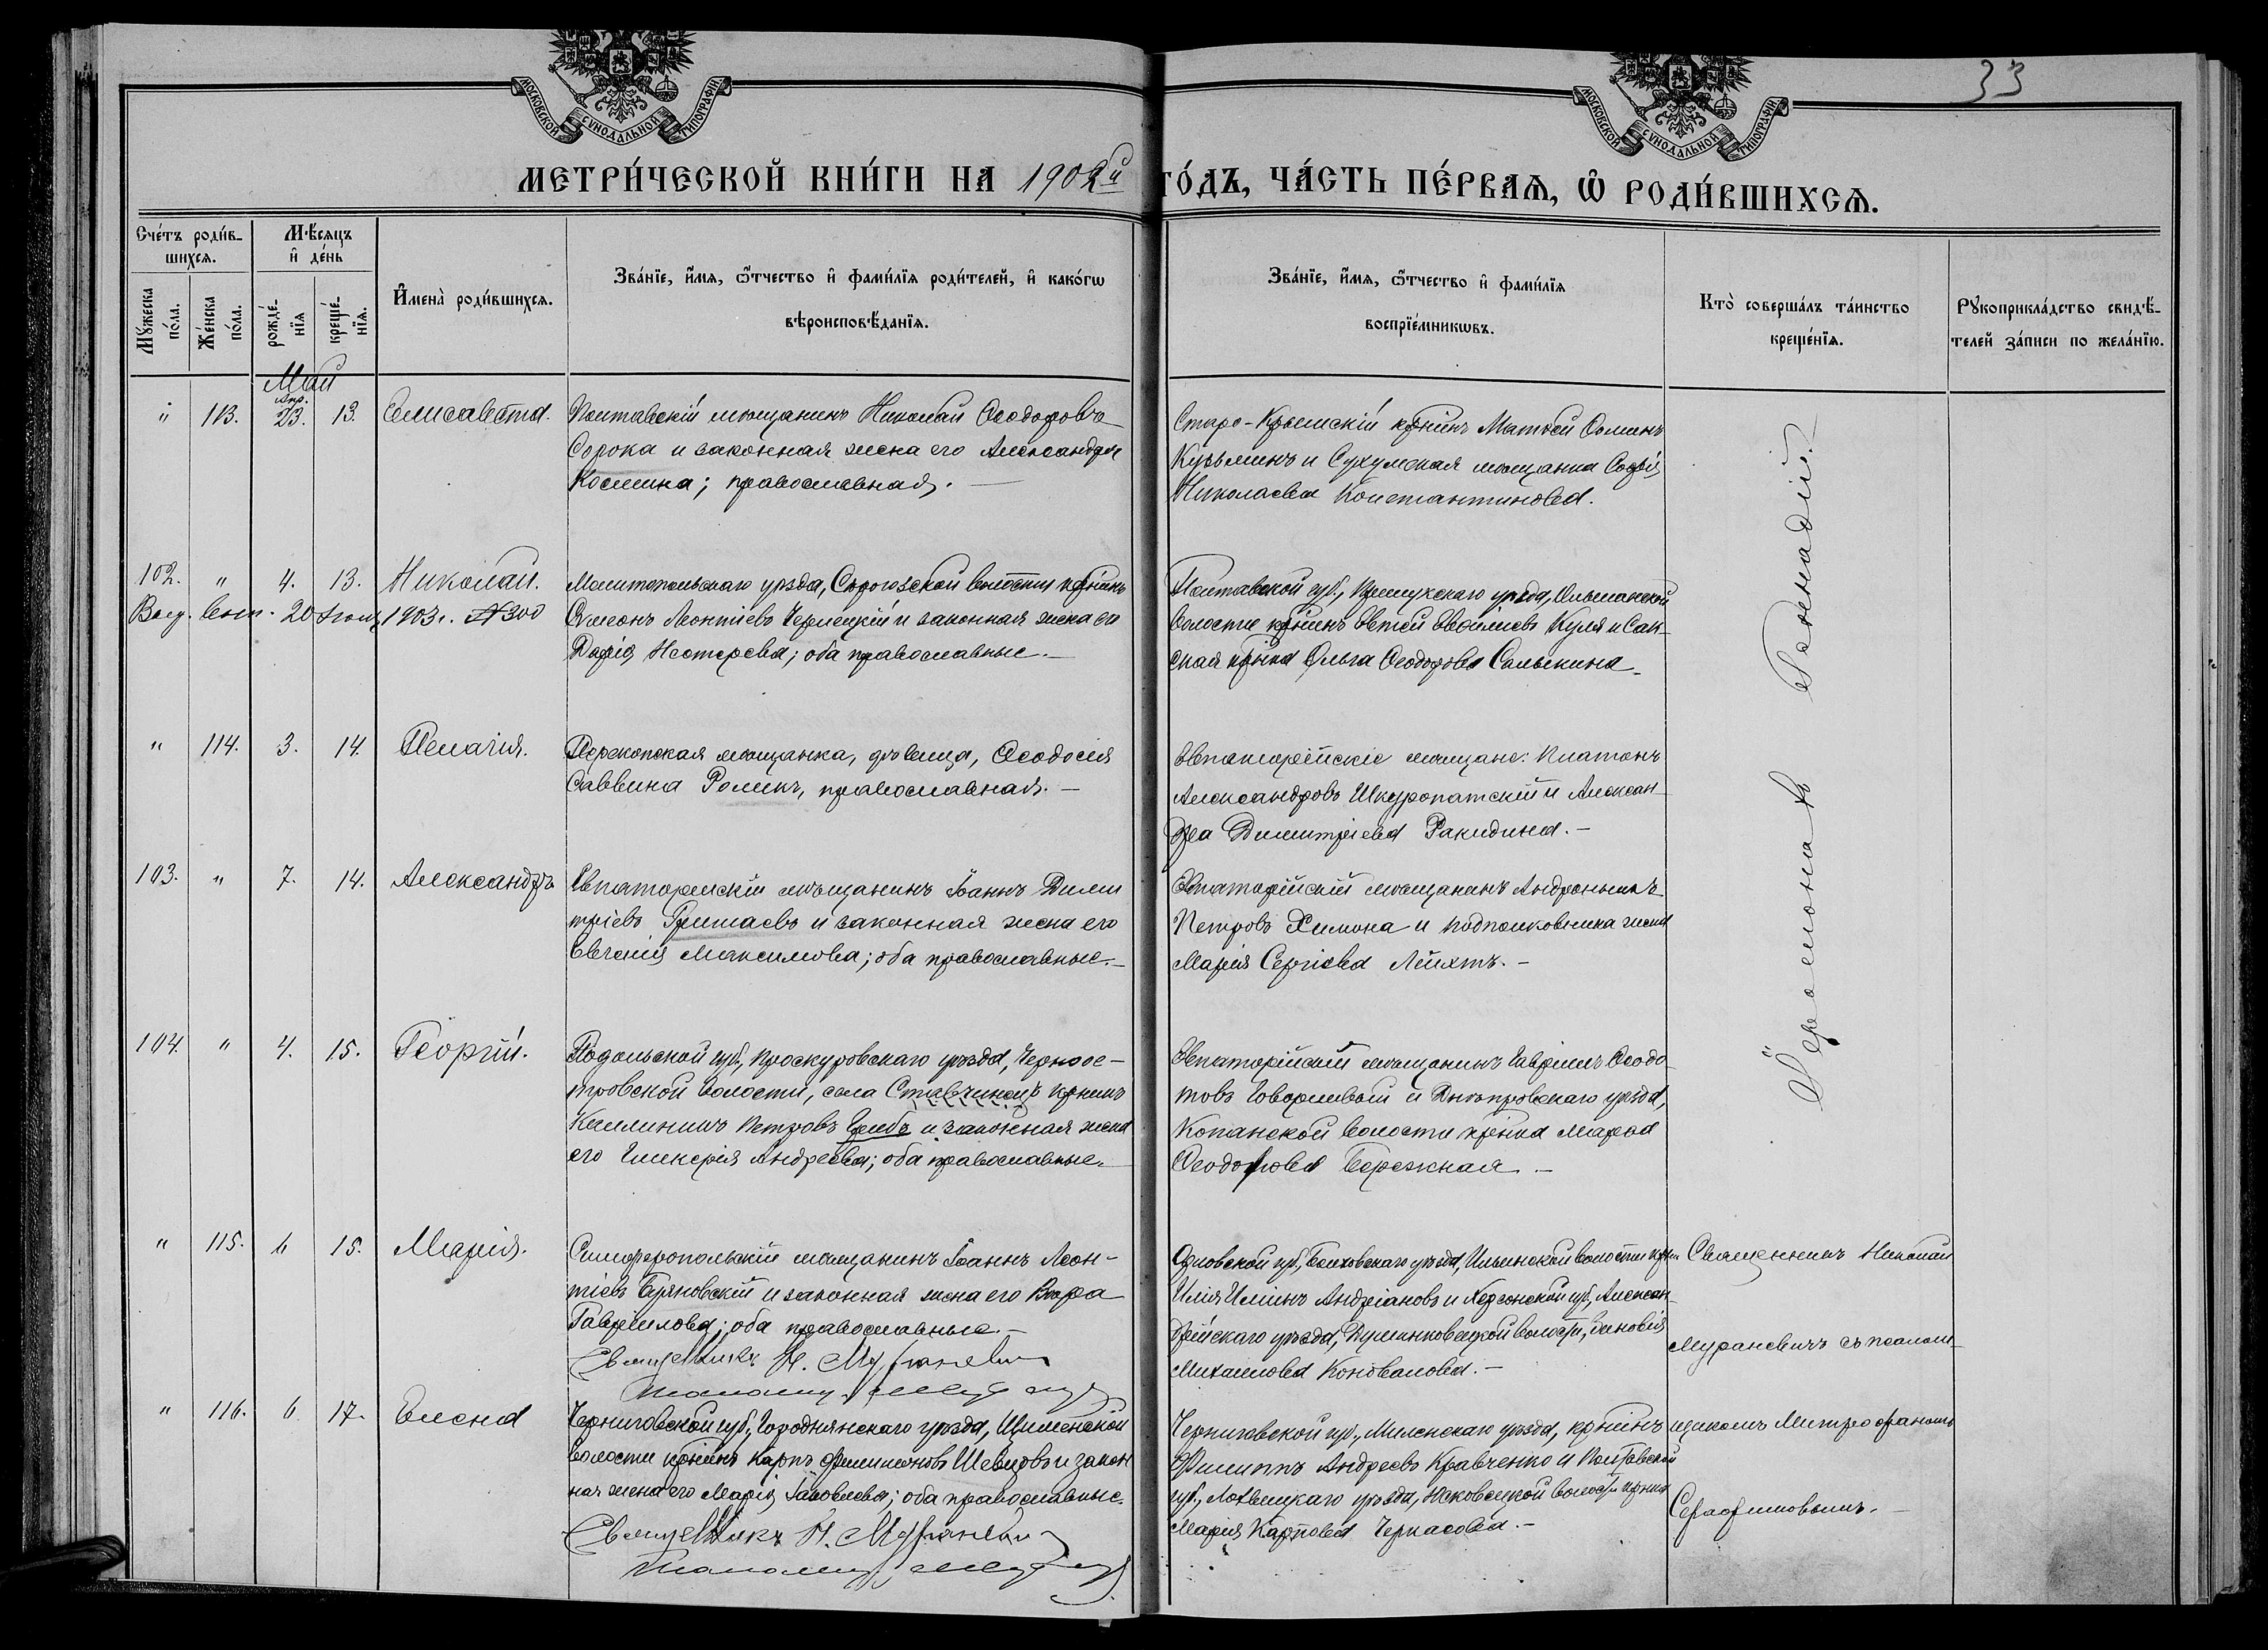 33
МОСКОВСКОЙ СѴНОДАЛЬНОЙ ТИПОГРАФІИ.
МОСКОВСКОЙ СѴНОДАЛЬНОЙ ТИПОГРАФІИ.
МЕТРИ́ЧЕСКОЙ КНИ́ГИ НА 1902й ГО́ДЪ, ЧА́СТЬ ПЕ́РВАѦ, Ѡ҆ РОДИ́ВШИХСѦ.
Сче́тъ роди́в-
шихсѧ.
Мꙋ́жеска по́ла.
Же́нска по́ла.
Мѣ́сѧцъ
и҆ де́нь
рожде́-
нїѧ
креще́-
нїѧ.
И҆мена̀ роди́вшихсѧ.
Зва́нїе, и҆́мѧ, ѻ҆́тчество и҆ фами́лїѧ роди́телей, и҆ како́гѡ
вѣроисповѣ́данїѧ.
Зва́нїе, и҆́мѧ, ѻ҆́тчество и҆ фами́лїѧ
воспрїе́мникѡвъ.
Кто̀ соверша́лъ та́инство
креще́нїѧ.
Рꙋкоприкла́дство свидѣ́-
телей за́писи по жела́нїю.
Май
Апр.
" 113. 23. 13. Елисавета.
Полтавскій мѣщанинъ Николай Ѳеодоровъ
Сорока и законная жена его Александра
Космина; православная.
Старо-Крымскій крнинъ Матѳей Ѳоминъ
Кузьминъ и Сухумская мѣщанка Софія
Николаева Константинова.
102. " 4. 13. Николай.
Выд. вып. 20 1903 г. № 300
Мелитопольскаго уѣзда, волости крнинъ
Симеонъ Леонтіевъ и законная жена его
Дарія Нестерева; оба православные.
Полтавской губ., уѣзда,
волости крнинъ Куля и Сак-
ская крнка Ольга Ѳеодорова Салыкина.
" 114. 3. 14. Пелагія.
Перекопская мѣщанка, дѣвица, Ѳеодосія
Саввина Роликъ, православная.
Евпаторійскіе мѣщане: Платонъ
Александровъ Шкуропатскій и Алексан-
дра Димитріева Ракидина.
103. " 7. 14. Александръ
Евпаторійскій мѣщанинъ Іоаннъ Дими
тріевъ Гришаевъ и законная жена его
Евгенія Максимова; оба православные.
Евпаторійскій мѣщанинъ
Петровъ Химона и подполковника жена
Марія Сергіева Лейхтъ.
104. " 4. 15. Георгій.
Подольской губ., Проскуровскаго уѣзда, Черноос-
тровской волости, села Ставчинецъ крнинъ
Петровъ и законная жена
его Гликерія Андреева; оба православные.
Евпаторійскій мѣщанинъ Гавріилъ Ѳеодо
товъ Говорливый и Днѣпровскаго уѣзда,
Копанской волости крнка
Ѳеодорова Бережная.
" 115. 6 15. Марія.
Симферопольскій мѣщанинъ Іоаннъ Леон-
тіевъ и законная жена его Вѣра
Гавріилова; оба православные.
Священникъ Н. Мураневичъ
Орловской губ., Болховскаго уѣзда, Ильинской волости крн.
Илія Иліинъ Андріановъ и Херсонской губ., Алексан-
дрійскаго уѣзда, волости,
Михаилова Коновалова.
Священникъ Николай
Мураневичъ съ псалом-
щикомъ Митрофаномъ
Серафимовымъ.
" 116. 6 17. Елена
Черниговской губ., Городнянскаго уѣзда,
волости крнинъ Карпъ Филимоновъ Шевцовъ и закон
ная жена его Марія Іаковлева; оба православные.
Священникъ Н. Мураневичъ
Черниговской губ., Мглинскаго уѣзда, крнинъ
Филиппъ Андреевъ Кравченко и Полтавской
губ., Лохвицкаго уѣзда, волости крнка
Марія Карпова Черкасова.
Іеромонахъ Геннадій.